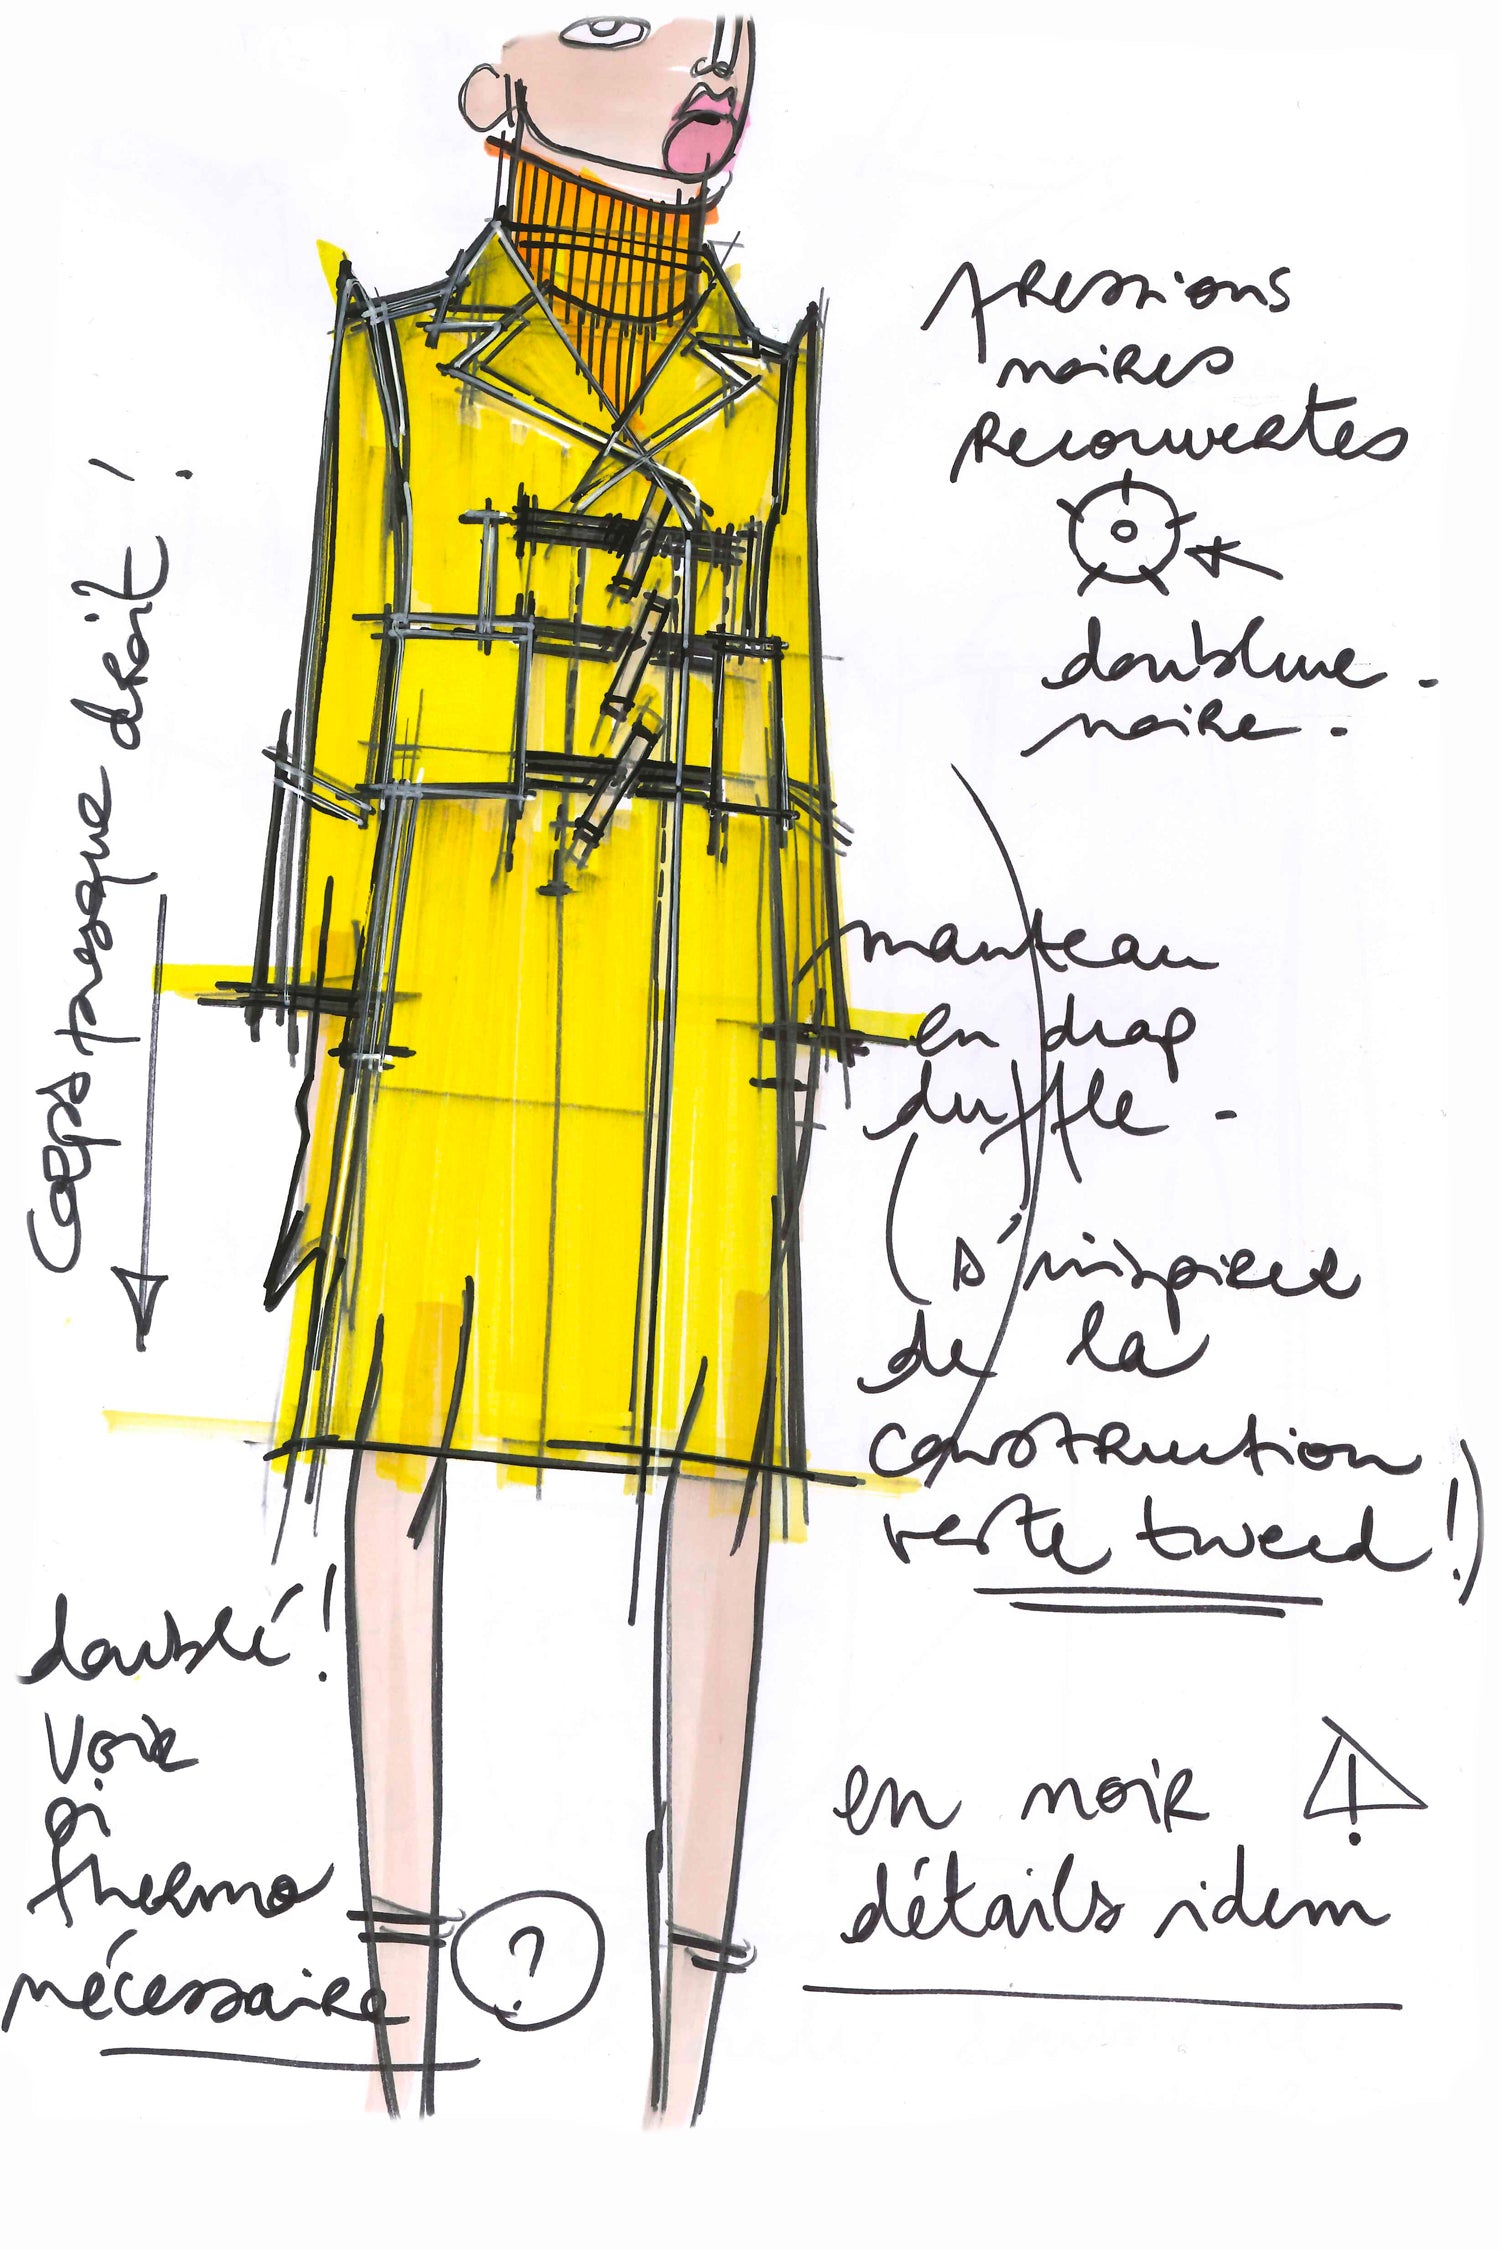 pressions
noires
recouvertes
doublure.
noire.
corps presque droit !
manteau
en drap
duffle.
(s'inspirer
de la
construction
veste tweed !)
doublé !
Voir
si
thermo
nécessaire
?
en noir
détails idem